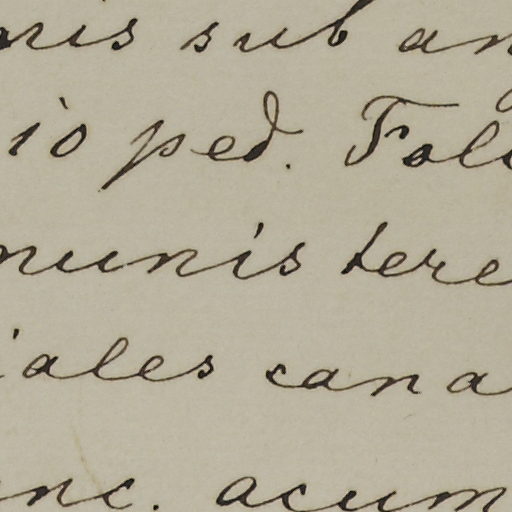 nis sub an
io ped. Foli
munis tere
iales cana
unc. acum